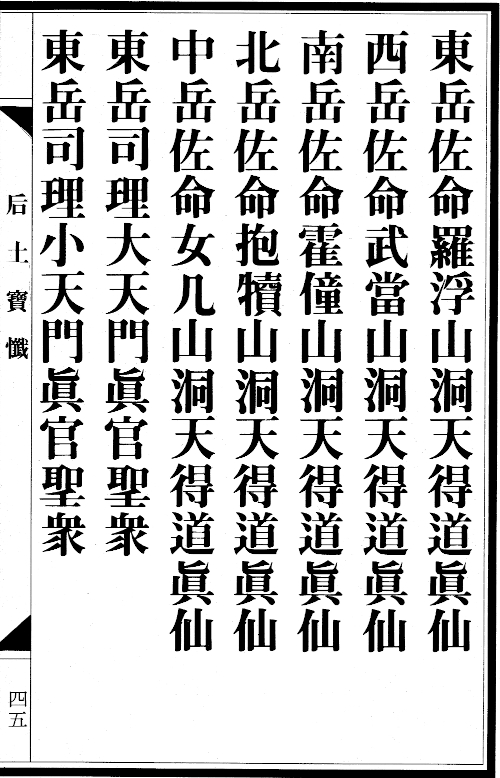 東岳佐命羅浮山洞天得道眞仙
西岳佐命武當山洞天得道眞仙
南岳佐命霍僮山洞天得道眞仙
北岳佐命抱犢山洞天得道眞仙
中岳佐命女几山洞天得道眞仙
東岳司理大天門眞官聖衆
東岳司理小天門眞官聖衆
后土寶懺
四五